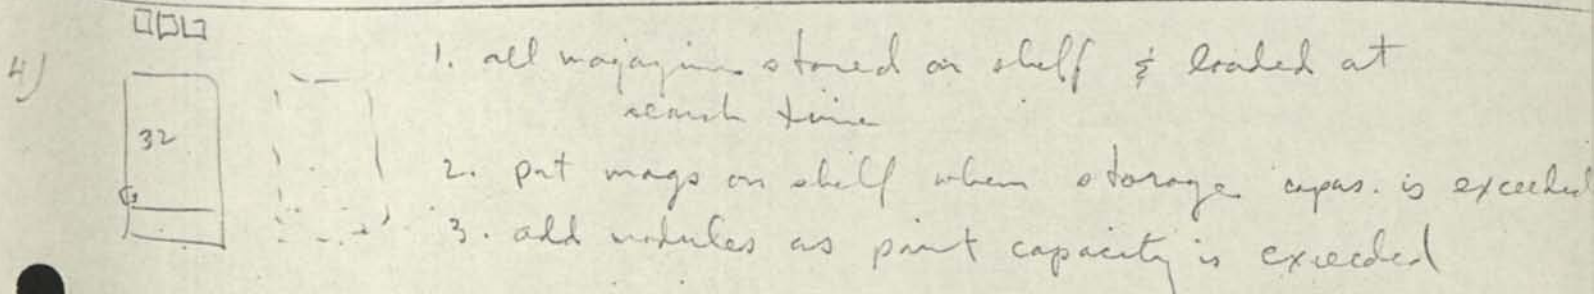 4)
32
1. all magazines stored on shelf & loaded at
search time
2. put mags on shelf when storage capas. is exceeded
3. add modules as capacity is exceeded